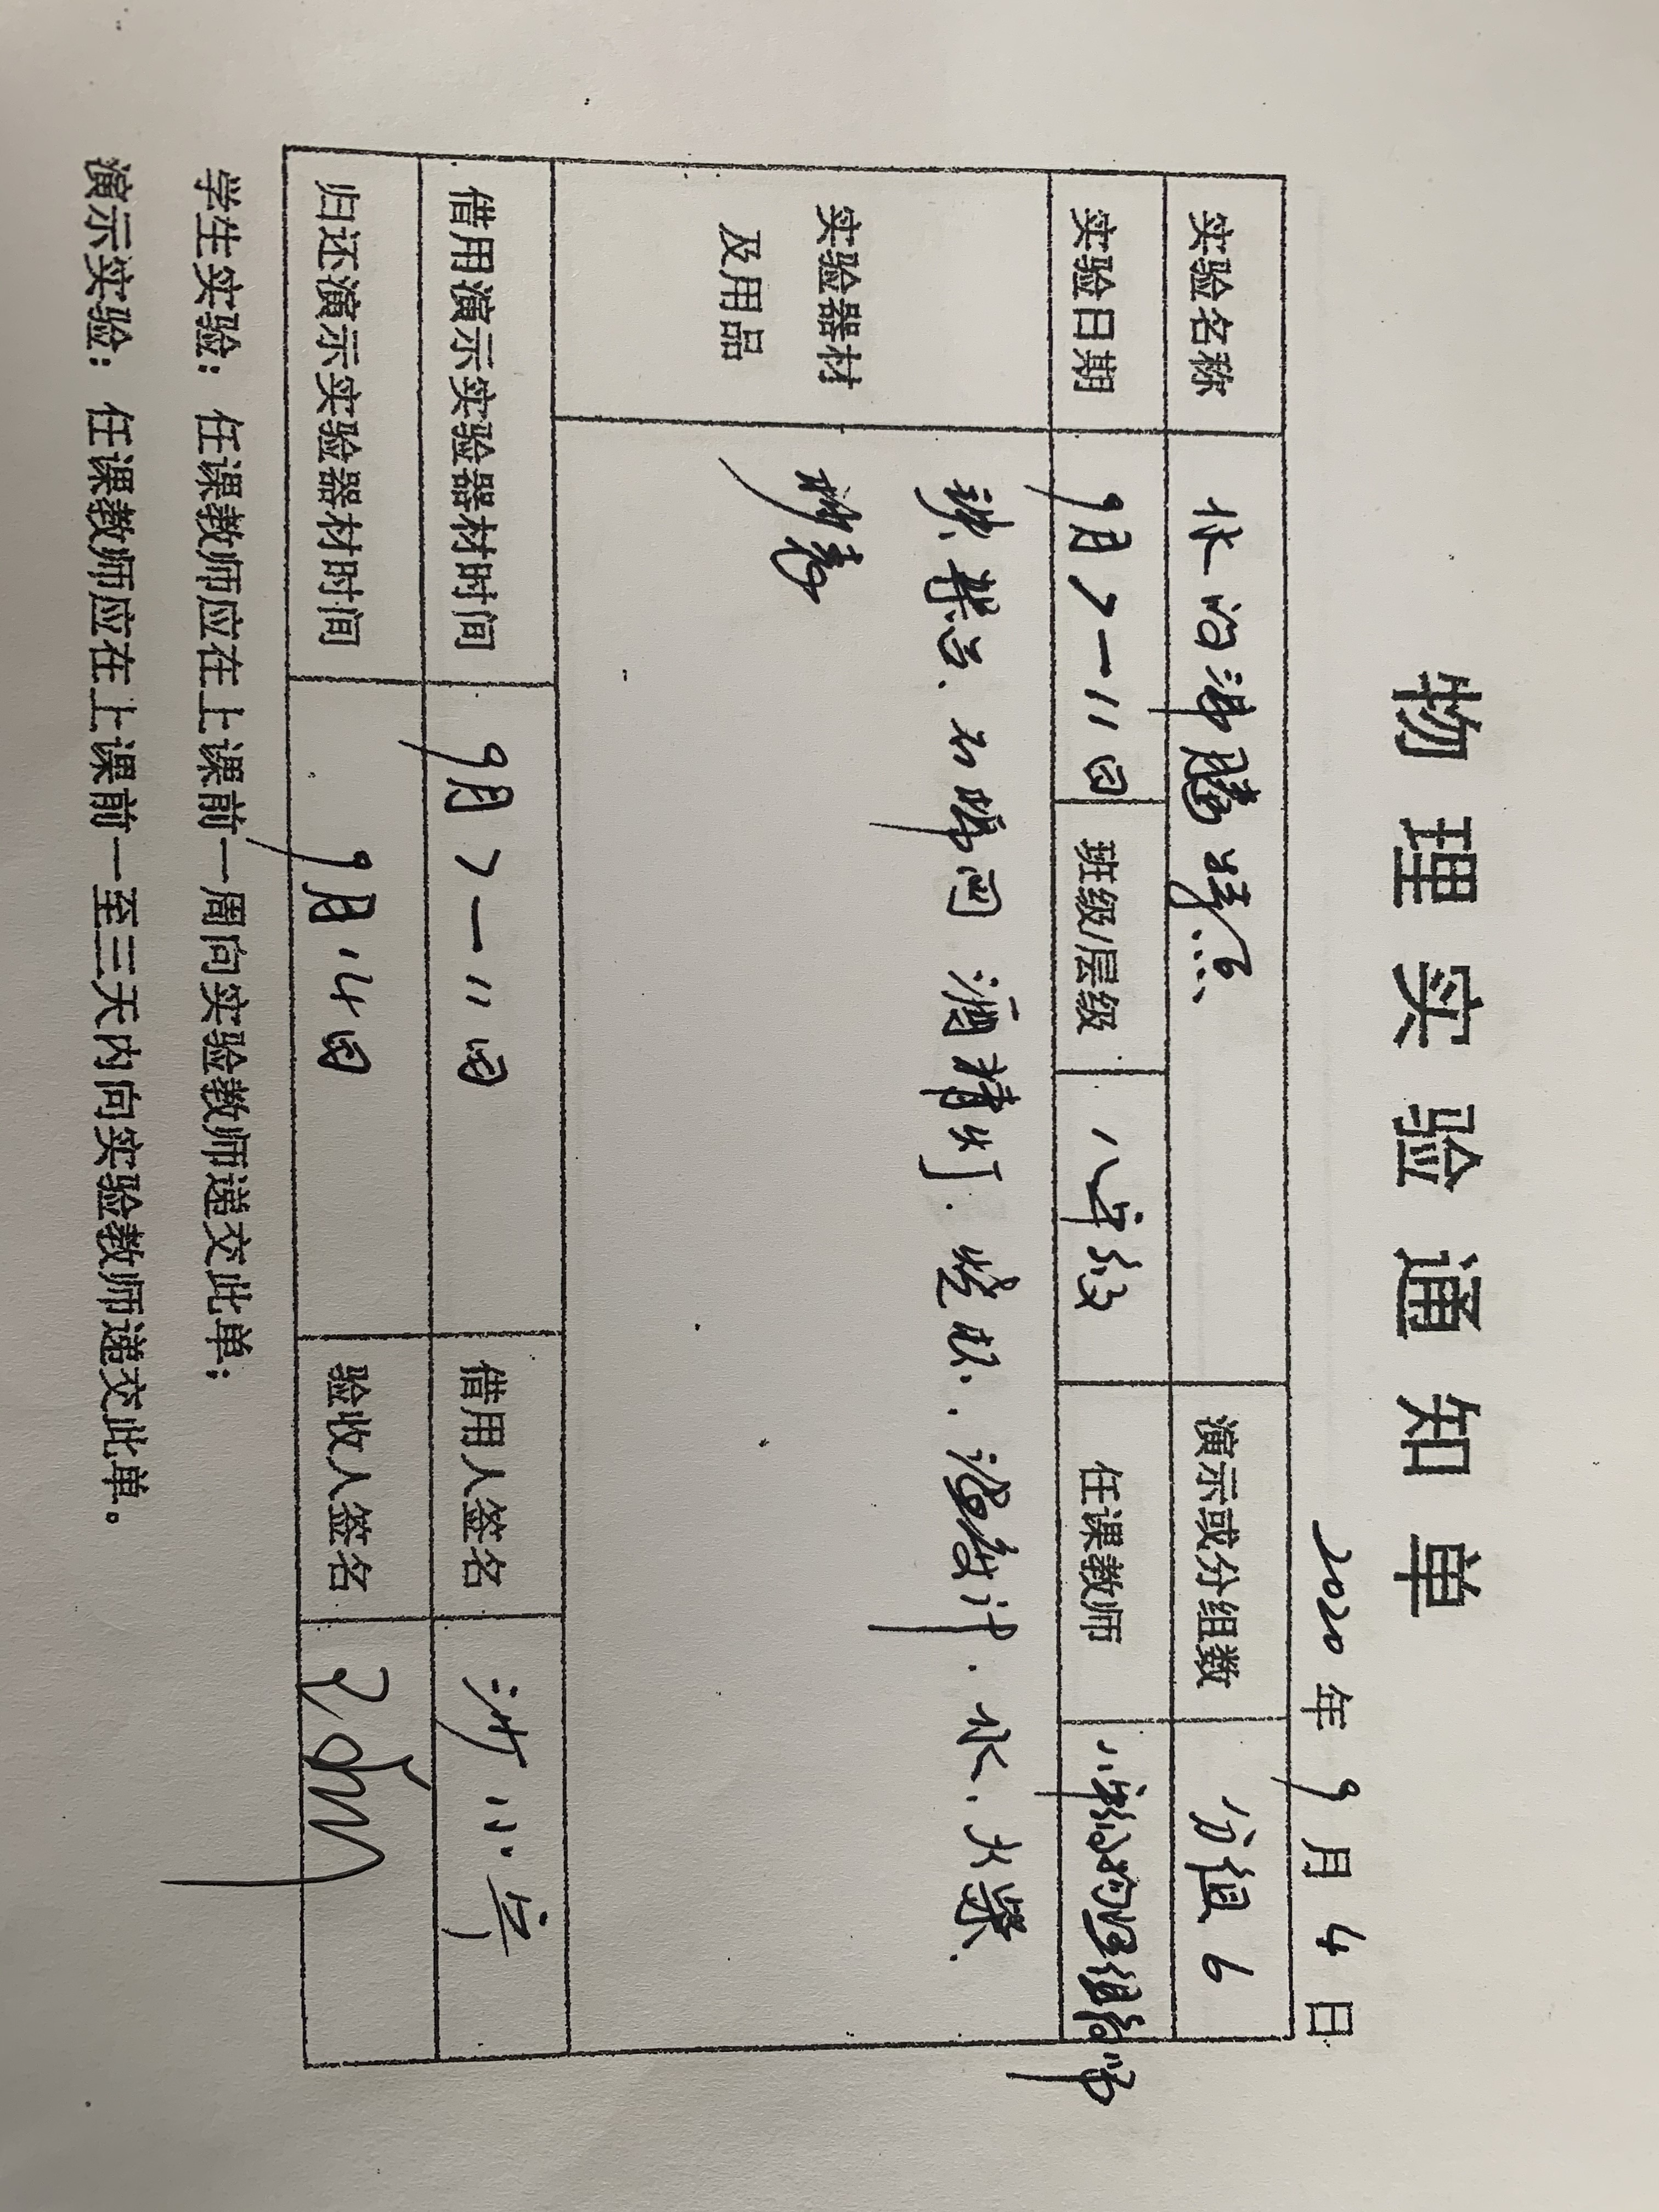 物理实验通知单
2020年9月4日
实验名称 水的沸腾 演示或分组数 分组6
实验日期 9月7-11日 班级/层级 八年级 任课教师 八年级物理组
实验器材及用品 铁架台、石棉网 酒精灯、烧杯、温度计、水、火柴、
秒表
借用演示实验器材时间 9月7-11日 借用人签名
归还演示实验器材时间 9月14日 验收人签名
学生实验：任课教师应在上课前一周向实验教师递交此单；
演示实验：任课教师应在上课前一至三天内向实验教师递交此单。